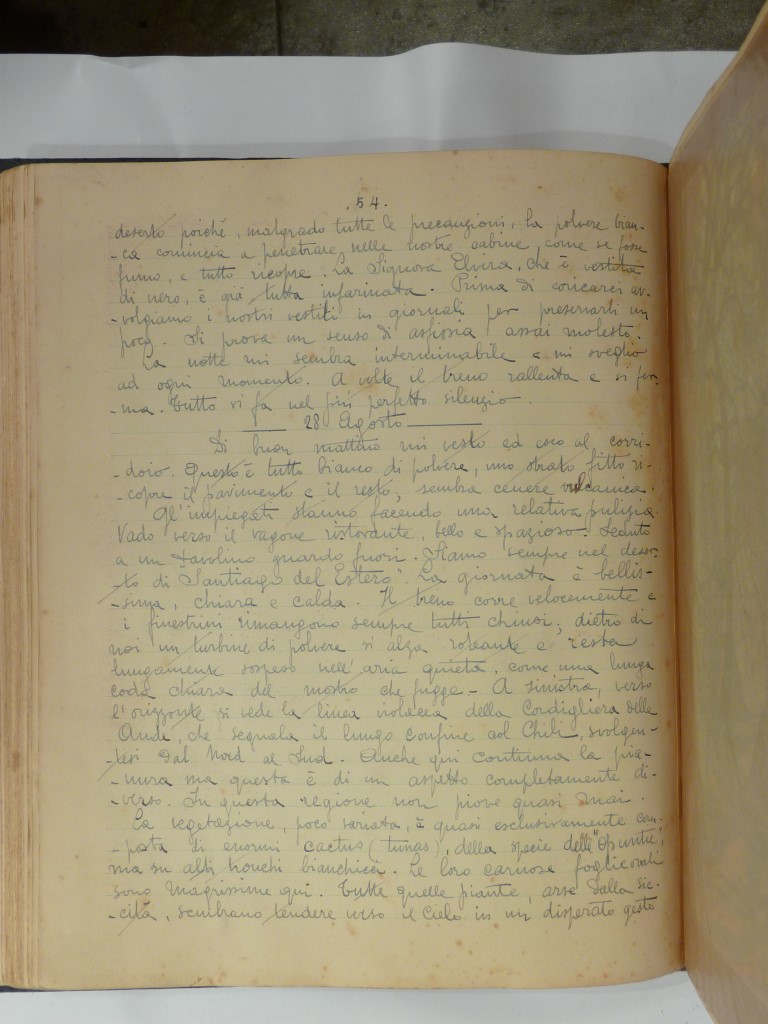 . 54 .
deserto poiché, malgrado tutte le precauzioni, la polvere bian-
-ca comincia a penetrare nelle nostre cabine, come se fosse
fumo, e tutto ricopre. La Signora Elvira, che è vestita
di nero, è già tutta infarinata. Prima di coricarci av-
-volgiamo i nostri vestiti in giornali per preservarli un
poco. Si prova un senso di asfissia assai molesto.
La notte mi sembra interminabile e mi sveglio
ad ogni momento. A volte il treno rallenta e si fer-
-ma. Tutto si fa nel più perfetto silenzio.
28 Agosto
Di buon mattino mi vesto ed esco al corri-
-doio. Questo è tutto bianco di polvere, uno strato fitto ri-
-copre il pavimento e il resto, sembra cenere vulcanica.
Gl'impiegati stanno facendo una relativa pulizia.
Vado verso il vagone ristorante, bello e spazioso. Seduto
a un tavolino guardo fuori. Siamo sempre nel deser-
-to di "Santiago del Estero". La giornata è bellis-
-sima, chiara e calda. Il treno corre velocemente e
i finestrini rimangono sempre tutti chiusi; dietro di
noi un turbine di polvere si alza roteante e resta
lungamente sospeso nell'aria quieta, come una lunga
coda chiara del mostro che fugge - A sinistra, verso
l'orizzonte si vede la linea violacea della Cordigliera delle
Ande, che segnala il lungo confine col Chilì, svolgen-
-tesi dal Nord al Sud. Anche qui continua la pia-
-nura ma questa è di un aspetto completamente di-
-verso. In questa regione non piove quasi mai.
La vegetazione, poco variata, è quasi esclusivamente com-
-posta di enormi cactus (tunas), della specie delle "Opuntie",
ma su alti tronchi bianchicci. Le loro carnose foglie ovali
sono magrissime qui. Tutte quelle piante, arse dalla sic-
-cità, sembrano tendere verso il Cielo in un disperato gesto